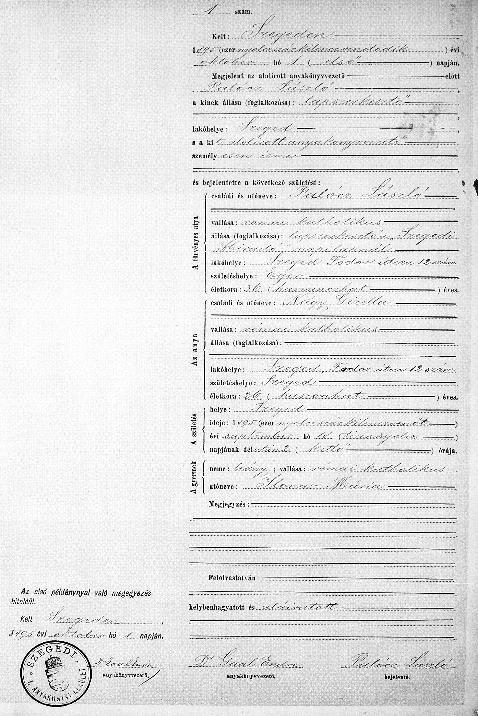 1 szám.
Kelt: Szegeden
1895 (ezernyolczszázkilenczvenötödik) évi
október hó 1 (első) napján.
Megjelent az alulirott anyakönyvvezető előtt
Palócz László
a kinek állása (foglalkozása): lapszerkesztő
lakóhelye: Szeged
s a kit alulirott anyakönyvvezető
személyesen ismer
és bejelentette a következő születést:
Az atya
családi és utóneve: Palócz László
vallása: római katholikus
állása (foglalkozása): Szegedi
Híradó
lakóhelye: Szeged Fodor utcza 12 szám
születéshelye: Eger
életkora: 36 (harminczhat) éves.
Az anya
családi és utóneve: Nagy Gizella
vallása: római katholikus
állása (foglalkozása):
lakóhelye: Szeged, Fodor utcza 12 szám
születéshelye: Szeged
életkora: 26 (huszonhat) éves.
A születés
helye: Szeged
ideje: 1895 (ezernyolczszázkilenczvenöt)
évi szeptember hó
napjának délután 2 (kettő) órája.
A gyermek
neme: leány; vallása: római katholikus
utóneve: Ilona Mária
Megjegyzés:
Felolvastatván
helybenhagyatott és aláiratott.
Az első példánynyal való megegyezés
hiteléül.
Kelt Szegeden
1895 évi október hó 1. napján.
anyakönyvvezető.
anyakönyvvezető.
Palócz László
bejelentő.
SZEGEDI